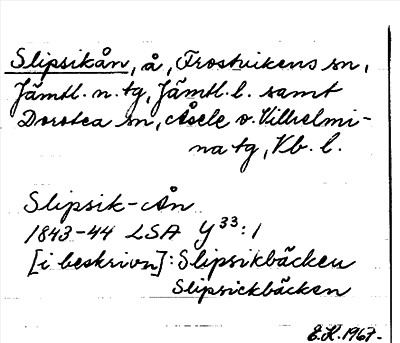 Slipsikån, å, Frostvikens sn,
Jämtl. n. tg, Jämtl. l. samt
Dorotea sn, Åsele o. Vilhelmi-
na tg, Vb. l.
Slipsik-Ån
1843-44 LSA Y 33:1
[i beskrivn]: Slipsikbäcken
Slipsickbäcken
E.H. 1967.-